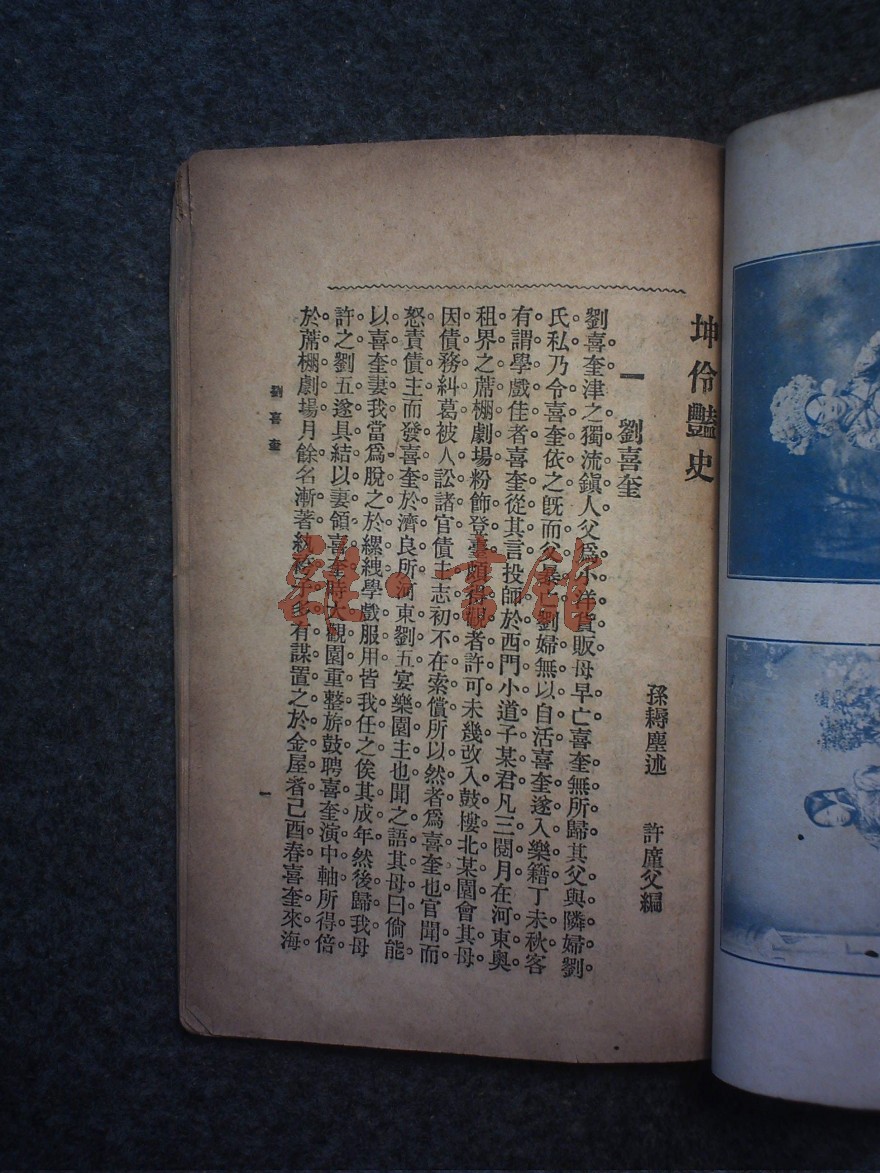 坤伶豔史
孫耨塵述 許廑父編
一 劉喜奎
劉喜奎津之獨流鎭人父爲小洋貨販母早亡喜奎無所歸其父與隣婦劉
氏私乃令喜奎依之旣而父暴亡劉婦無以自活喜奎遂入樂籍丁未秋客
有謂學戲佳者喜奎從其言投師於西門小道子某君凡三閱月在河東奧
租界之蓆棚劇場粉飾登臺頗得觀者許可未幾改入鼓樓北某園會其母
因債務糾葛被人訟諸官債主志初不在索償所以然者爲喜奎也官聞而
怒責債主而發喜奎於濟良所河東劉五宴樂園主也聞之語其母曰倘能
以喜奎妻我當爲脫之於縲絏學戲服用皆我任之俟其成年然後歸我母
許之劉五遂具結以妻領喜奎時大觀園重整旂鼓聘喜奎演中軸所得倍
於蓆棚劇場月餘名漸著紈袴子多有謀置之於金屋者己酉春喜奎來海
劉喜奎
一